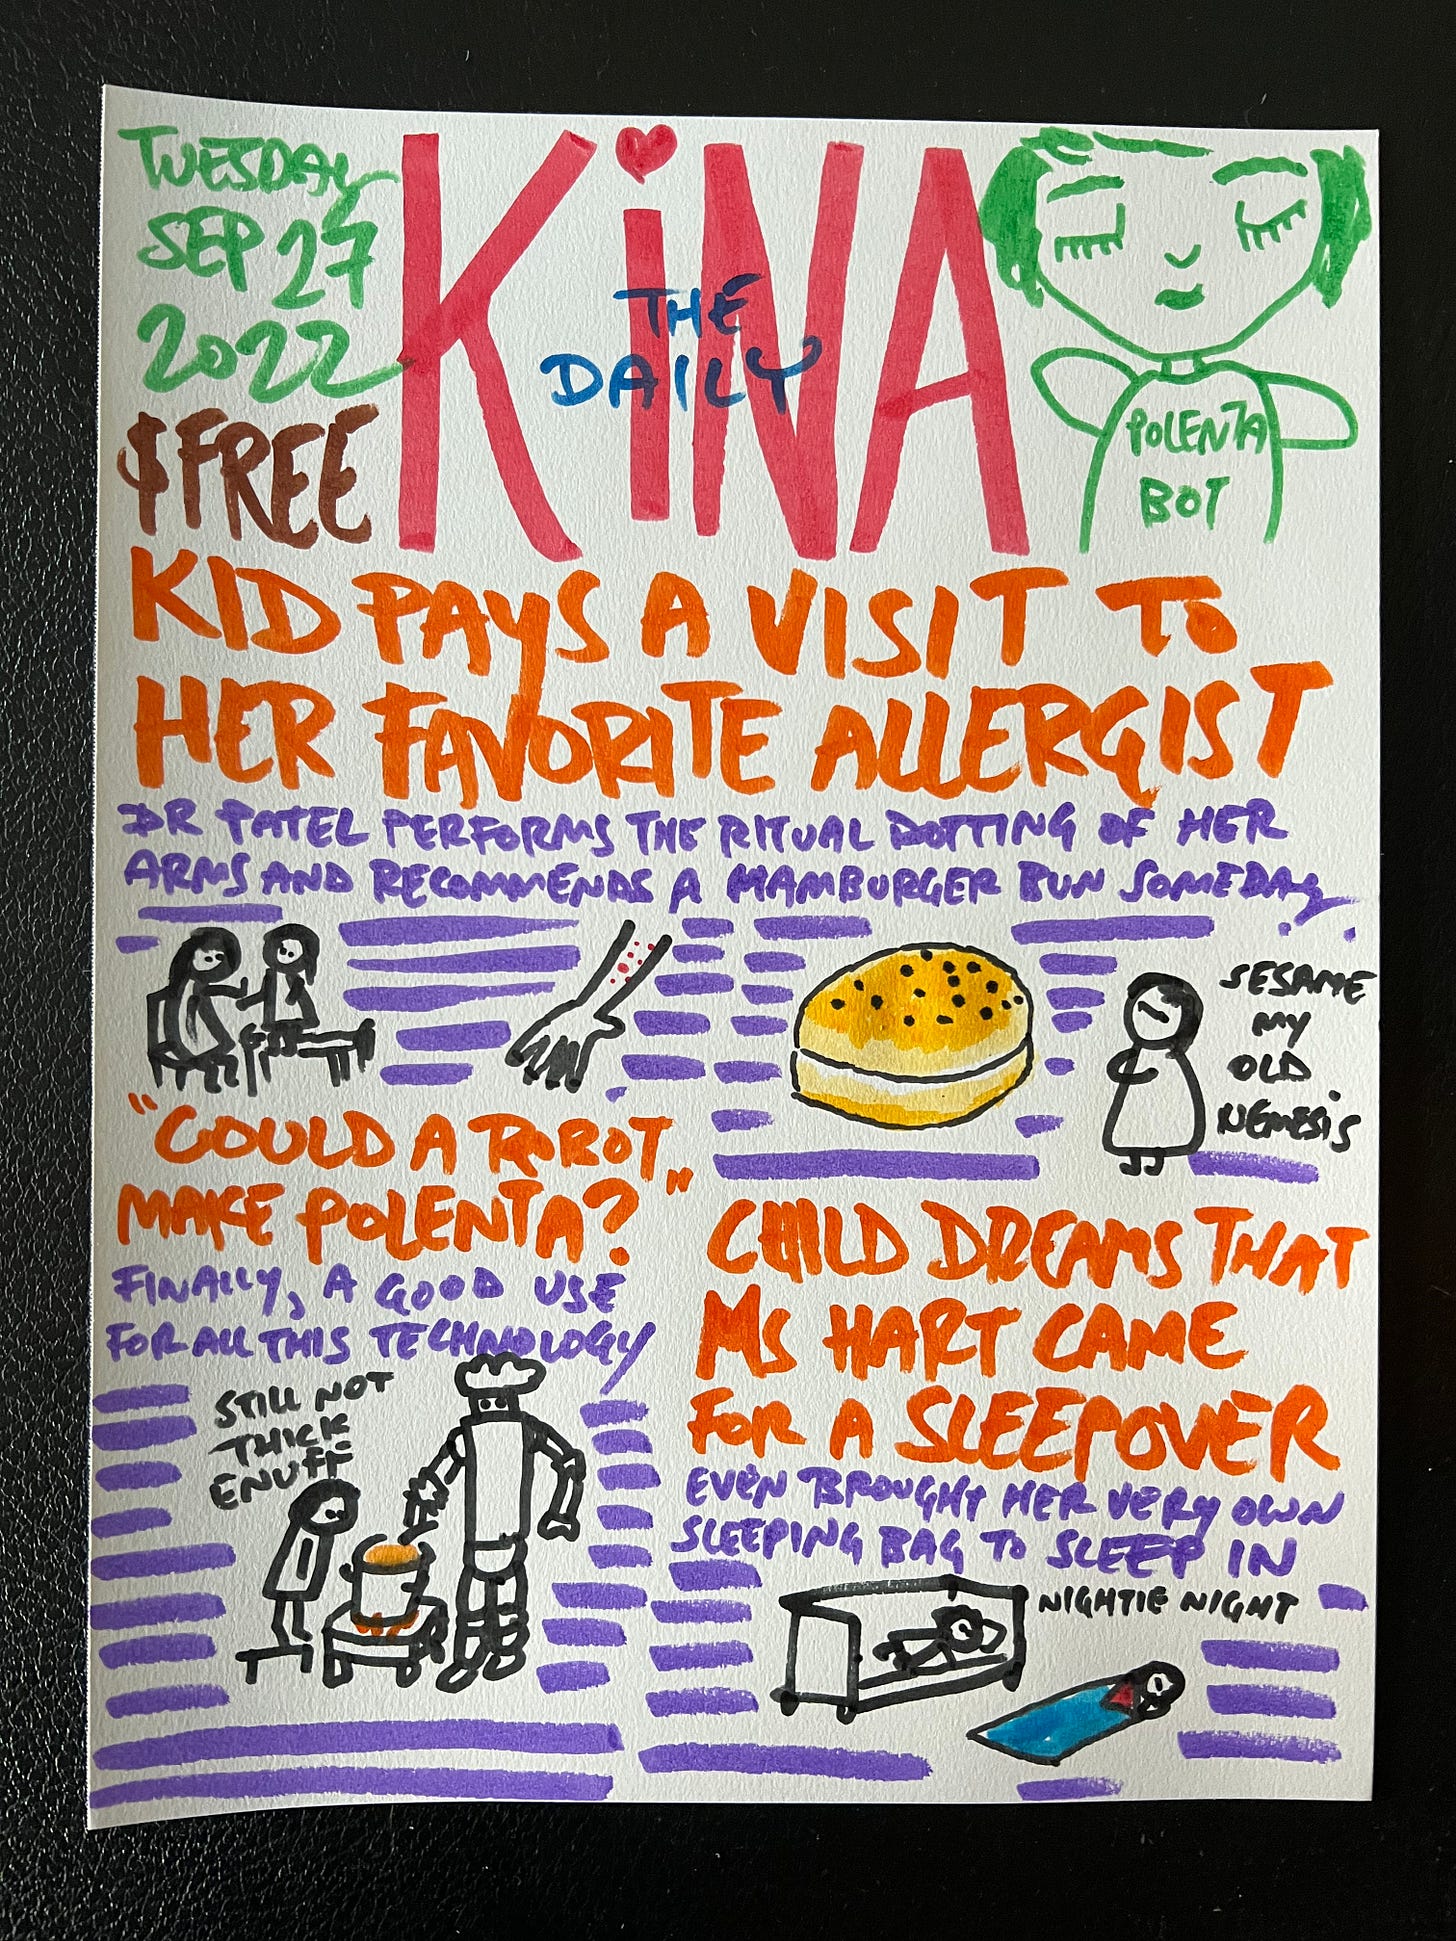 TUESDAY
SEP 27
2022
$FREE
THE
DAILY
KiNA
POLENTA
BOT
KID PAYS A VISIT TO
HER FAVORITE ALLERGIST
DR PATEL PERFORMS THE RITUAL DOTTING OF HER
ARMS AND RECOMMENDS A HAMBURGER BUN SOMEDAY
SESAME
MY
OLD
NEMESIS
"COULD A ROBOT
MAKE POLENTA?"
FINALLY, A GOOD USE
FOR ALL THIS TECHNOLOGY
STILL NOT
THICK
ENUFF
CHILD DREAMS THAT
MS HART CAME
FOR A SLEEPOVER
EVEN BROUGHT HER VERY OWN
SLEEPING BAG TO SLEEP IN
NIGHTIE NIGHT